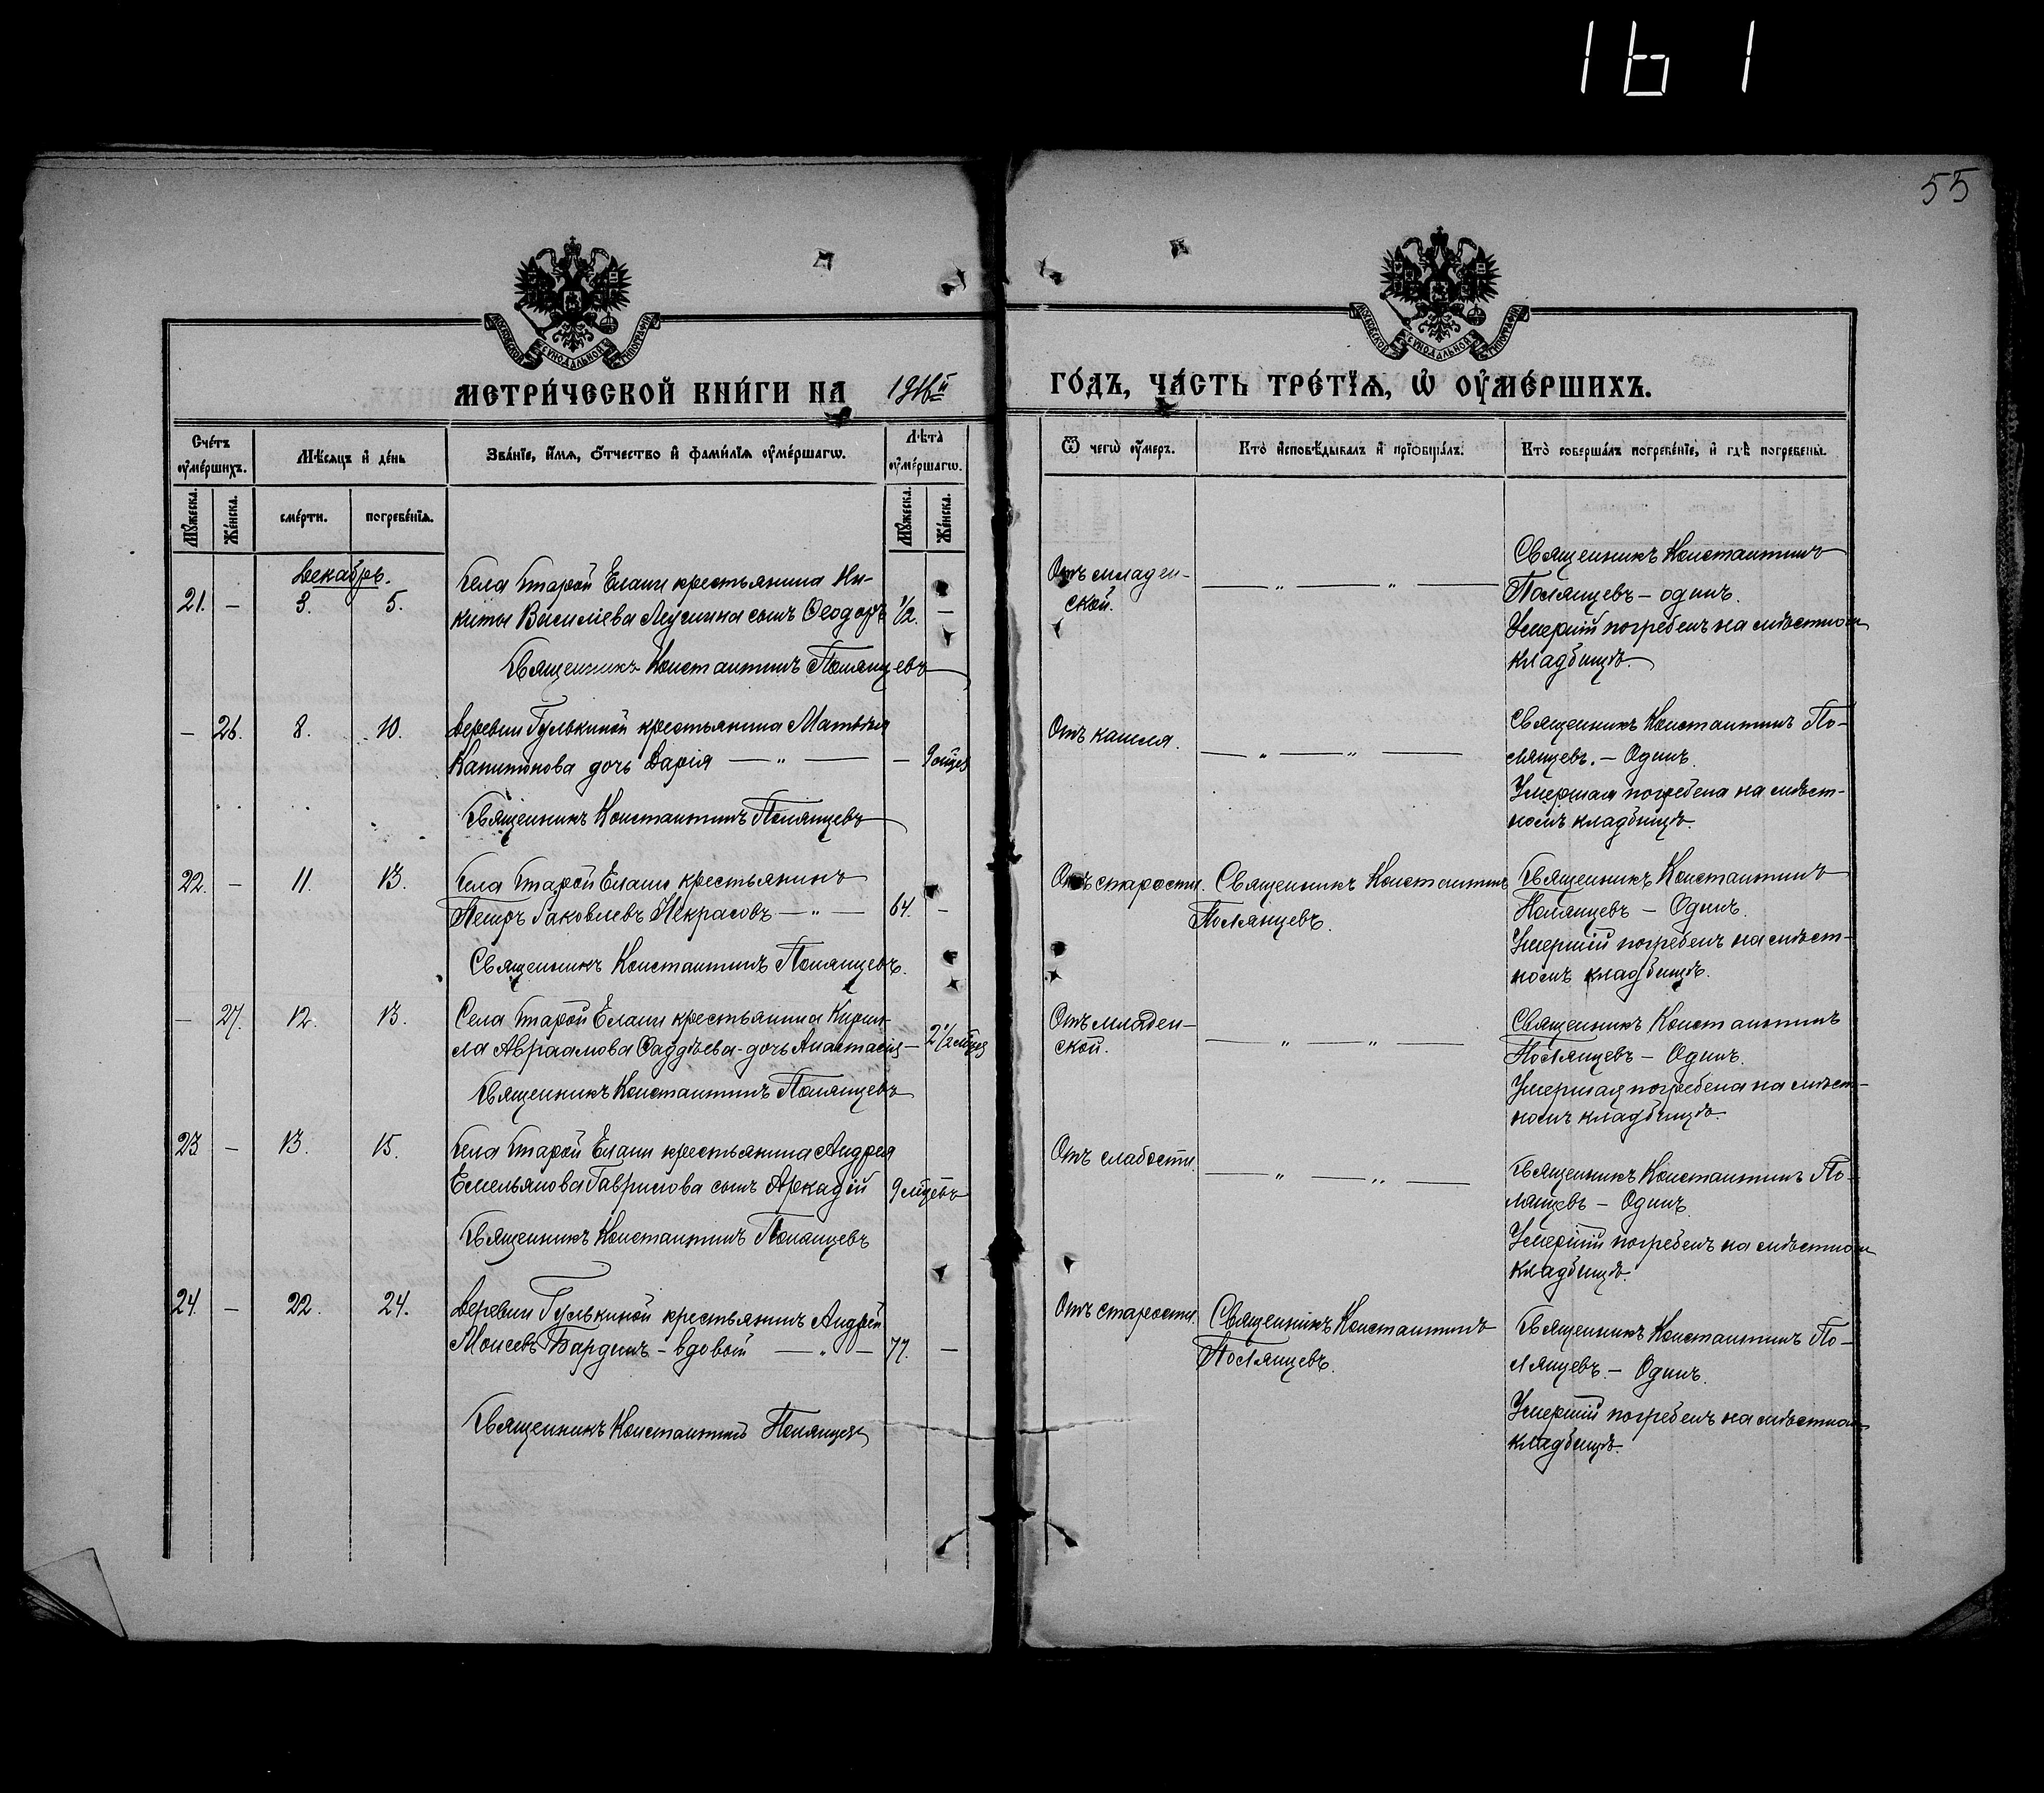 161
55
МОСКОВСКОЙ СУНОДАЛЬНОЙ ТИПОГРАФІИ
МОСКОВСКОЙ СУНОДАЛЬНОЙ ТИПОГРАФІИ
МЕТРИ́ЧЕСКОЙ КНИ́ГИ НА 1916й
ГО́ДЪ, ЧА́СТЬ ТРЕ́ТІѦ, Ѡ ОУ҆МЕ́РШИХЪ.
Сче́тъ оумершихъ.
Мѣсяцъ и де́нь
Зва́ніе, и́мѧ, о́тчество и фами́лія оуме́ршагѡ.
Лѣта̀ оумершагѡ.
Ѿ чегѡ̀ оу́меръ.
Кто̀ исповѣ́дывалъ и прїѡбща́лъ.
Кто̀ соверша́лъ погребе́ніе, и гдѣ̀ погребены̀.
Мꙋжеска.
Же́нска.
сме́рти.
погребе́нія.
Мꙋжеска.
Же́нска.
Декабрь.
21. — 3. 5.
Села Старой Елани крестьянина Ни-
киты Васильева сынъ Ѳеодоръ 1/2. —
Священникъ Константинъ Полянцевъ
Отъ младен-
ской.
— „ — „ —
Священникъ Константинъ
Полянцевъ — одинъ.
Умершій погребенъ на мѣстномъ
кладбищѣ.
— 26. 8. 10.
Деревни Гулькиной крестьянина Матвѣя
Капитонова дочь Дарія — „ — — 9
Священникъ Константинъ Полянцевъ
Отъ кашля.
— „ — „ —
Священникъ Константинъ По-
лянцевъ. — Одинъ.
Умершая погребена на мѣст-
номъ кладбищѣ.
22. — 11. 13.
Села Старой Елани крестьянинъ
Петръ Іаковлевъ Некрасовъ — „ — 64. —
Священникъ Константинъ Полянцевъ.
Отъ старости.
Священникъ Константинъ
Полянцевъ.
Священникъ Константинъ
Полянцевъ — Одинъ.
Умершій погребенъ на мѣст-
номъ кладбищѣ.
— 27. 12. 13.
Села Старой Елани крестьянина Кирил-
ла Авраамова Ѳаддѣева - дочь Анастасія — 2 1/2 мѣсяц
Священникъ Константинъ Полянцевъ
Отъ младен-
ской.
— „ — „ —
Священникъ Константинъ
Полянцевъ — Одинъ.
Умершая погребена на мѣст-
номъ кладбищѣ.
23 — 13. 15.
Села Старой Елани крестьянина Андрея
Емельянова Гаврилова сынъ Аркадій 9 мѣцевъ
Священникъ Константинъ Полянцевъ
Отъ слабости.
— „ — „ —
Священникъ Константинъ По-
лянцевъ — Одинъ.
Умершій погребенъ на мѣстномъ
кладбищѣ.
24. — 22. 24.
Деревни Гулькиной крестьянинъ Андрей
Моисеевъ Бардинъ - вдовый — „ — 77. —
Священникъ Константинъ Полянцевъ
Отъ старости.
Священникъ Константинъ
Полянцевъ.
Священникъ Константинъ По-
лянцевъ. — Одинъ.
Умершій погребенъ на мѣстномъ
кладбищѣ.